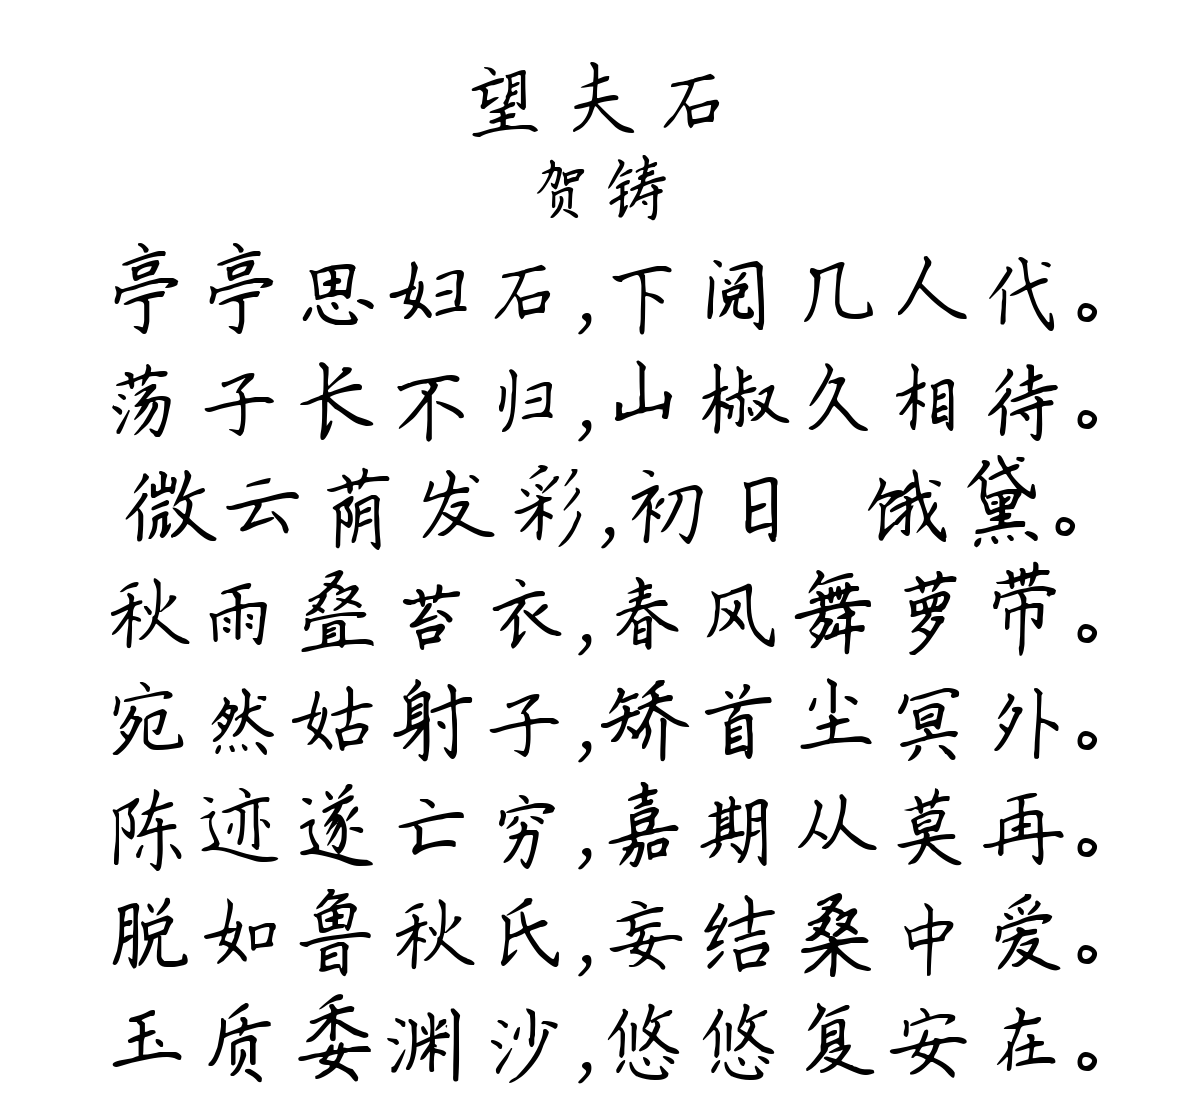 望夫石
贺铸
亭亭思妇石,下阅几人代。
荡子长不归,山椒久相待。
微云荫发彩,初日 饿黛。
秋雨叠苔衣,春风舞萝带。
宛然姑射子,矫首尘冥外。
陈迹遂亡穷,嘉期从莫再。
脱如鲁秋氏,妄结桑中爱。
玉质委渊沙,悠悠复安在。